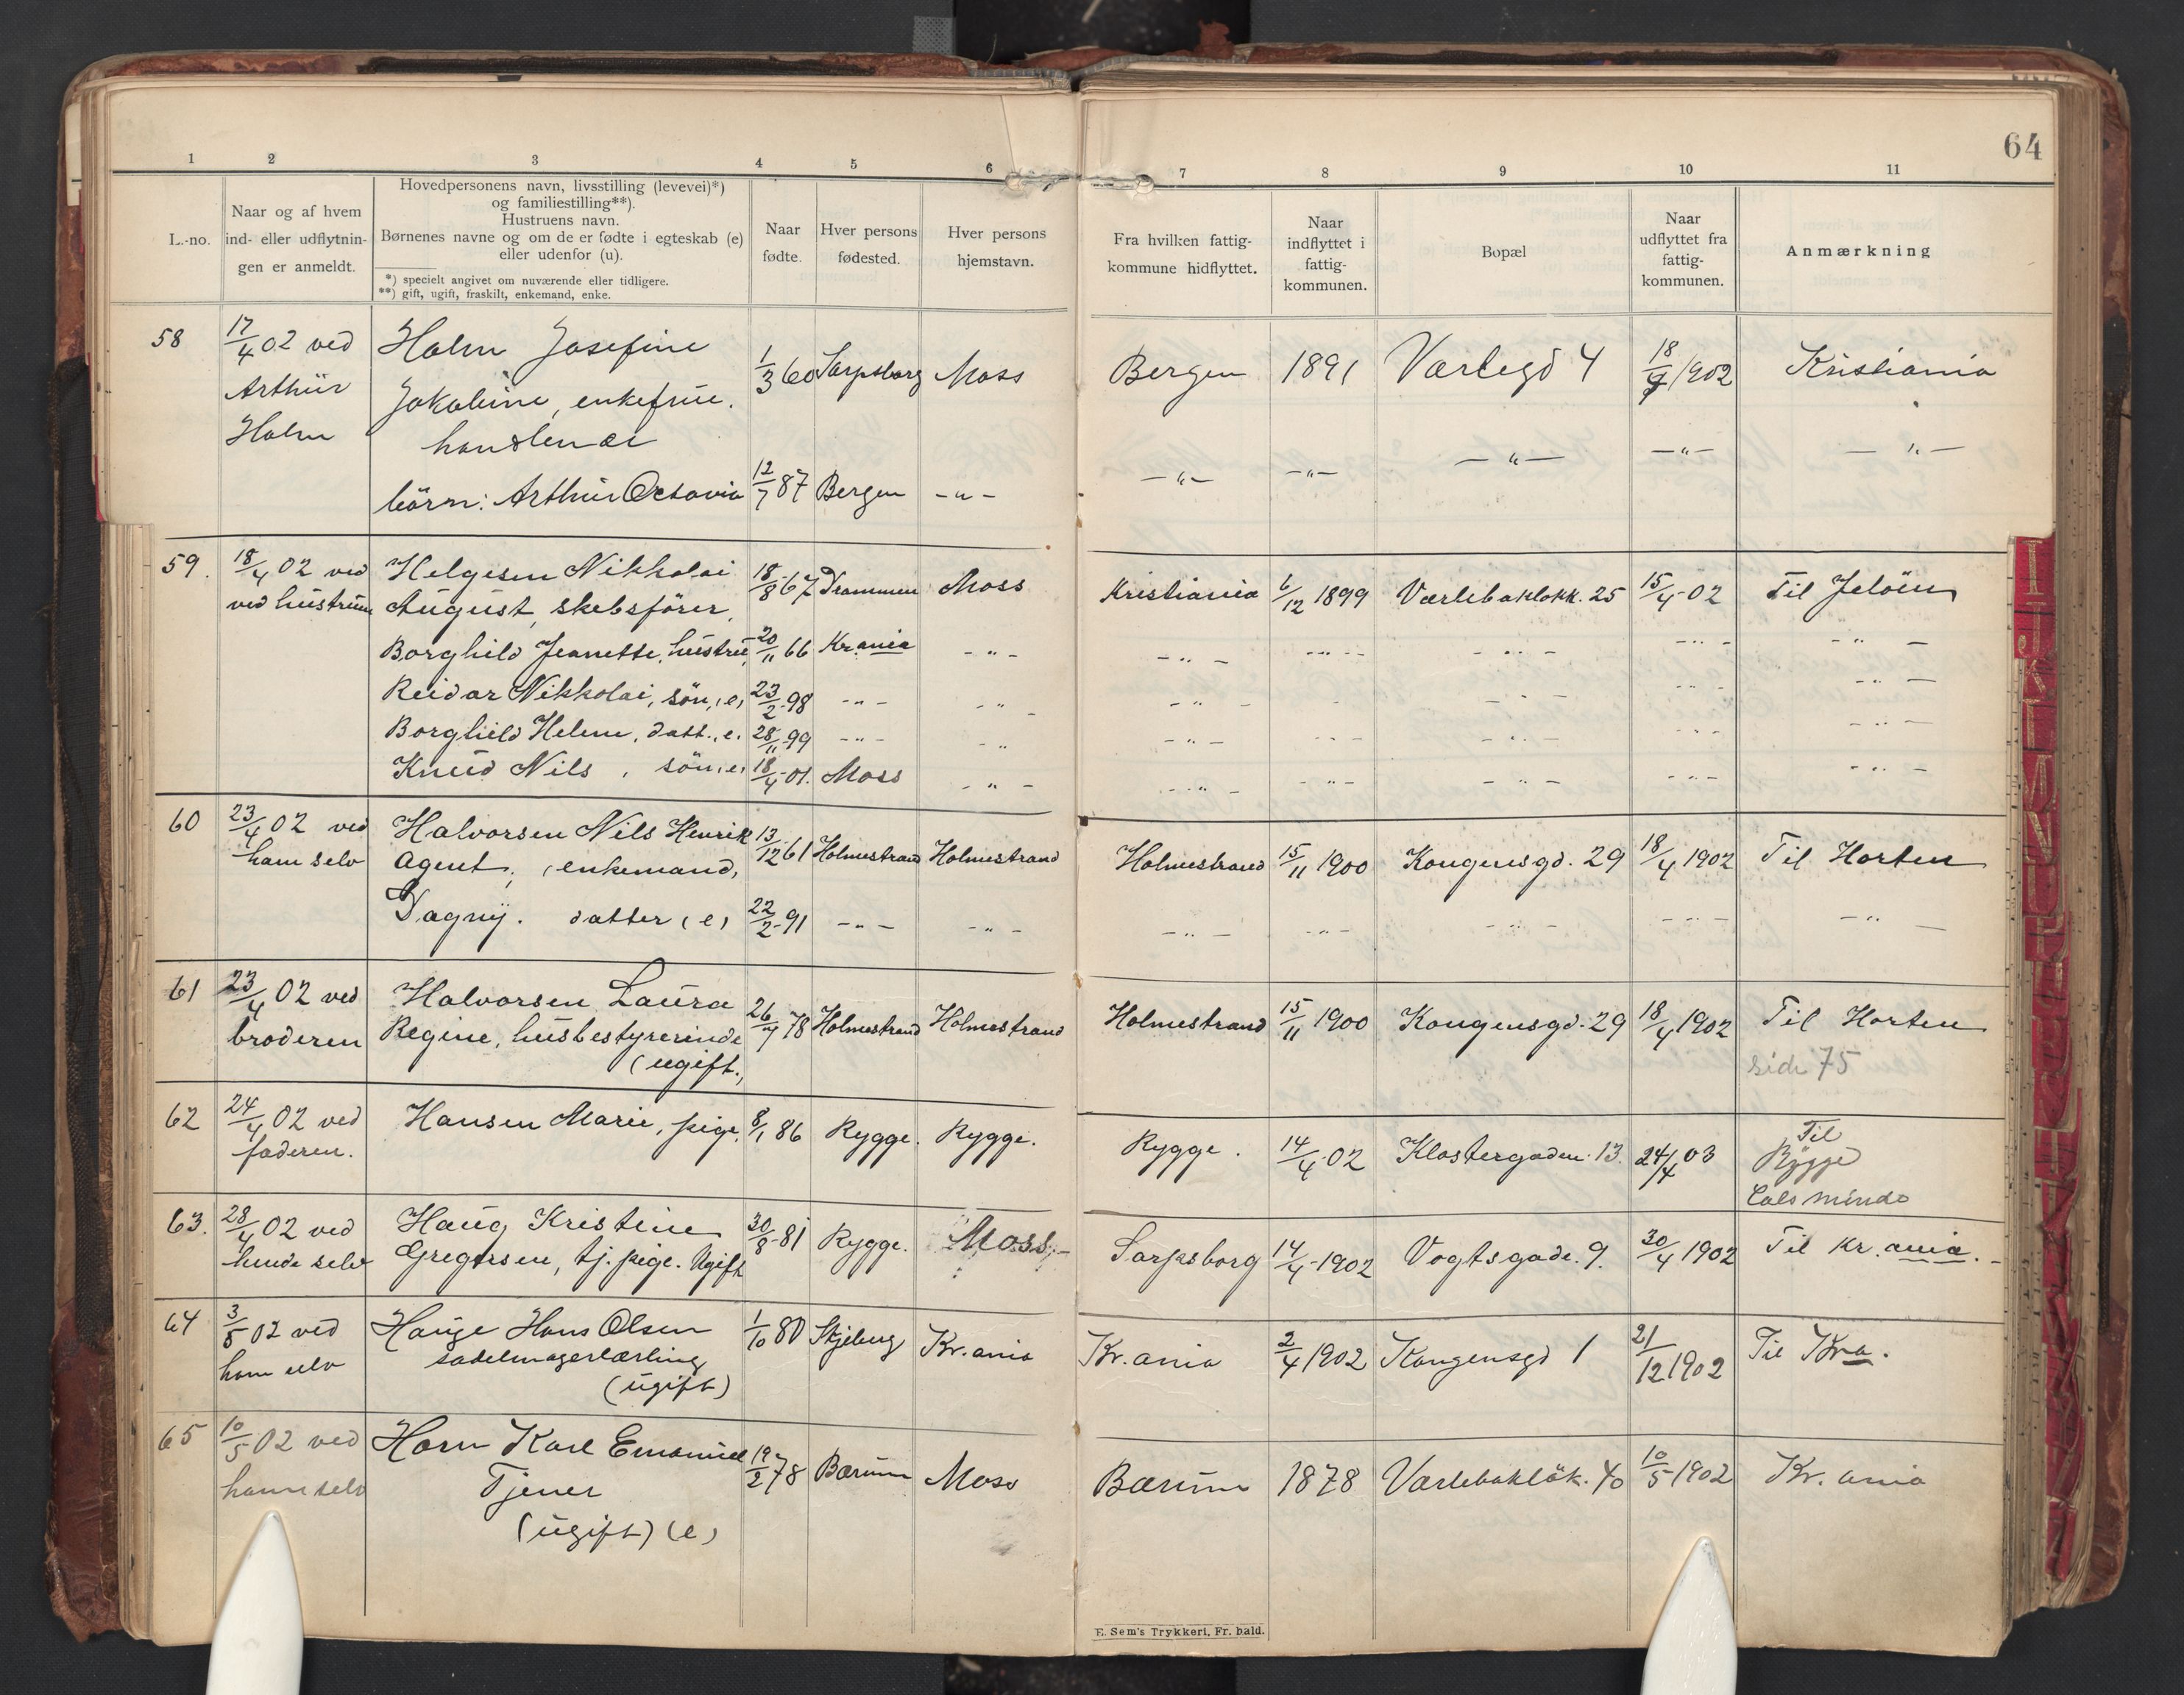 64
1 2 3 4 5 6 7 8 9 10 11
L.-no.
Naar og af hvem
ind- eller udflytnin-
gen er anmeldt.
Hovedpersonens navn, livsstilling (levevei)*)
og familiestilling**).
Hustruens navn.
Børnenes navne og om de er fødte i egteskab (e)
eller udenfor (u).
*) specielt angivet om nuværende eller tidligere.
**) gift, ugift, fraskilt, enkemand, enke.
Naar
fødte.
Hver persons
fødested.
Hver persons
hjemstavn.
Fra hvilken fattig-
kommune hidflyttet.
Naar
indflyttet i
fattig-
kommunen.
Bopæl
Naar
udflyttet fra
fattig-
kommunen.
Anmærkning
58 17/4 02 ved Holm Josefine 1/3 60 Sarpsborg Moss Bergen 1891 Varlegd 4 18/4 1902 Kristiania
Arthur Jakobine, enkefrue.
Holm handlende
börn: Arthur Octavia 12/7 87 Bergen -"- -"- -"- -"- -"- -"-
59. 18/4 02 ved Helgesen Nikkolai 18/8 67 Drammen Moss Kristiania 6/12 1899 Værlebaklökk. 25 15/4-02 Til Jelöen
ved hustruen August, skibsförer,
Borghild Jeanette, hustru, 20/11 66 Krania -"- -"- -"- -"- -"- -"-
Reidar Nikkolai, sön, (e) 23/2-98 -"- -"- -"- - -"- -"- -"-
Borghild Helene, datt., e. 28/11-99 -"- -"- -"- -"- -"- -"- -"-
Knud Nils, sön, (e) 18/4-01. Moss -"- -"- -"- -"- -"- -"-
60 23/4 02 ved Halvorsen Nils Henrik 13/12 61 Holmestrand Holmestrand Holmestrand 15/11 1900 Kongensgd. 29 18/4 1902 Til Horten
ham selv agent, (enkemand)
Dagny. datter (e) 22/2-91 -"- -"- -"- -"- -"- -"- -"-
61 23/4 02 ved Halvorsen Laura 26/7 78 Holmestrand Holmestrand Holmestrand 15/11 1900 Kongensgd. 29 18/4 1902 Til Horten
broderen Regine, husbestyrerinde
(ugift.)
side 75
62 24/4 02 ved Hansen Marie, pige, 8/1 86 Rygge. Rygge. Rygge. 14/4-02 Klostergaden. 13. 24/4 03 Til
faderen. Rygge
63. 28/4 02 ved Haug Kristine 30/8-81 Rygge. Moss,- Sarpsborg 14/4-1902 Vogtsgade. 9. 30/4 1902 Til Kr.ania.-
hende selv Gregersen, tj. pige. Ugift
64 3/5 02 ved Hauge Hans Olsen 1/10 80 Skjeberg Kr.ania Kr.ania 2/4 1902 Kongensgd 1 21/12 1902 Til Kra.
ham selv sadelmagerlærling
(ugift)
65 10/5 02 ved Horn Karl Emanuel 19/2 78 Bærum Moss Bærum 1878 Varlebaklök. 40 10/5 1902 Kr. ania
ham selv Tjener
(ugift) (e)
E. Sem's Trykkeri, Fr. hald.
I
J
K
L
M
N